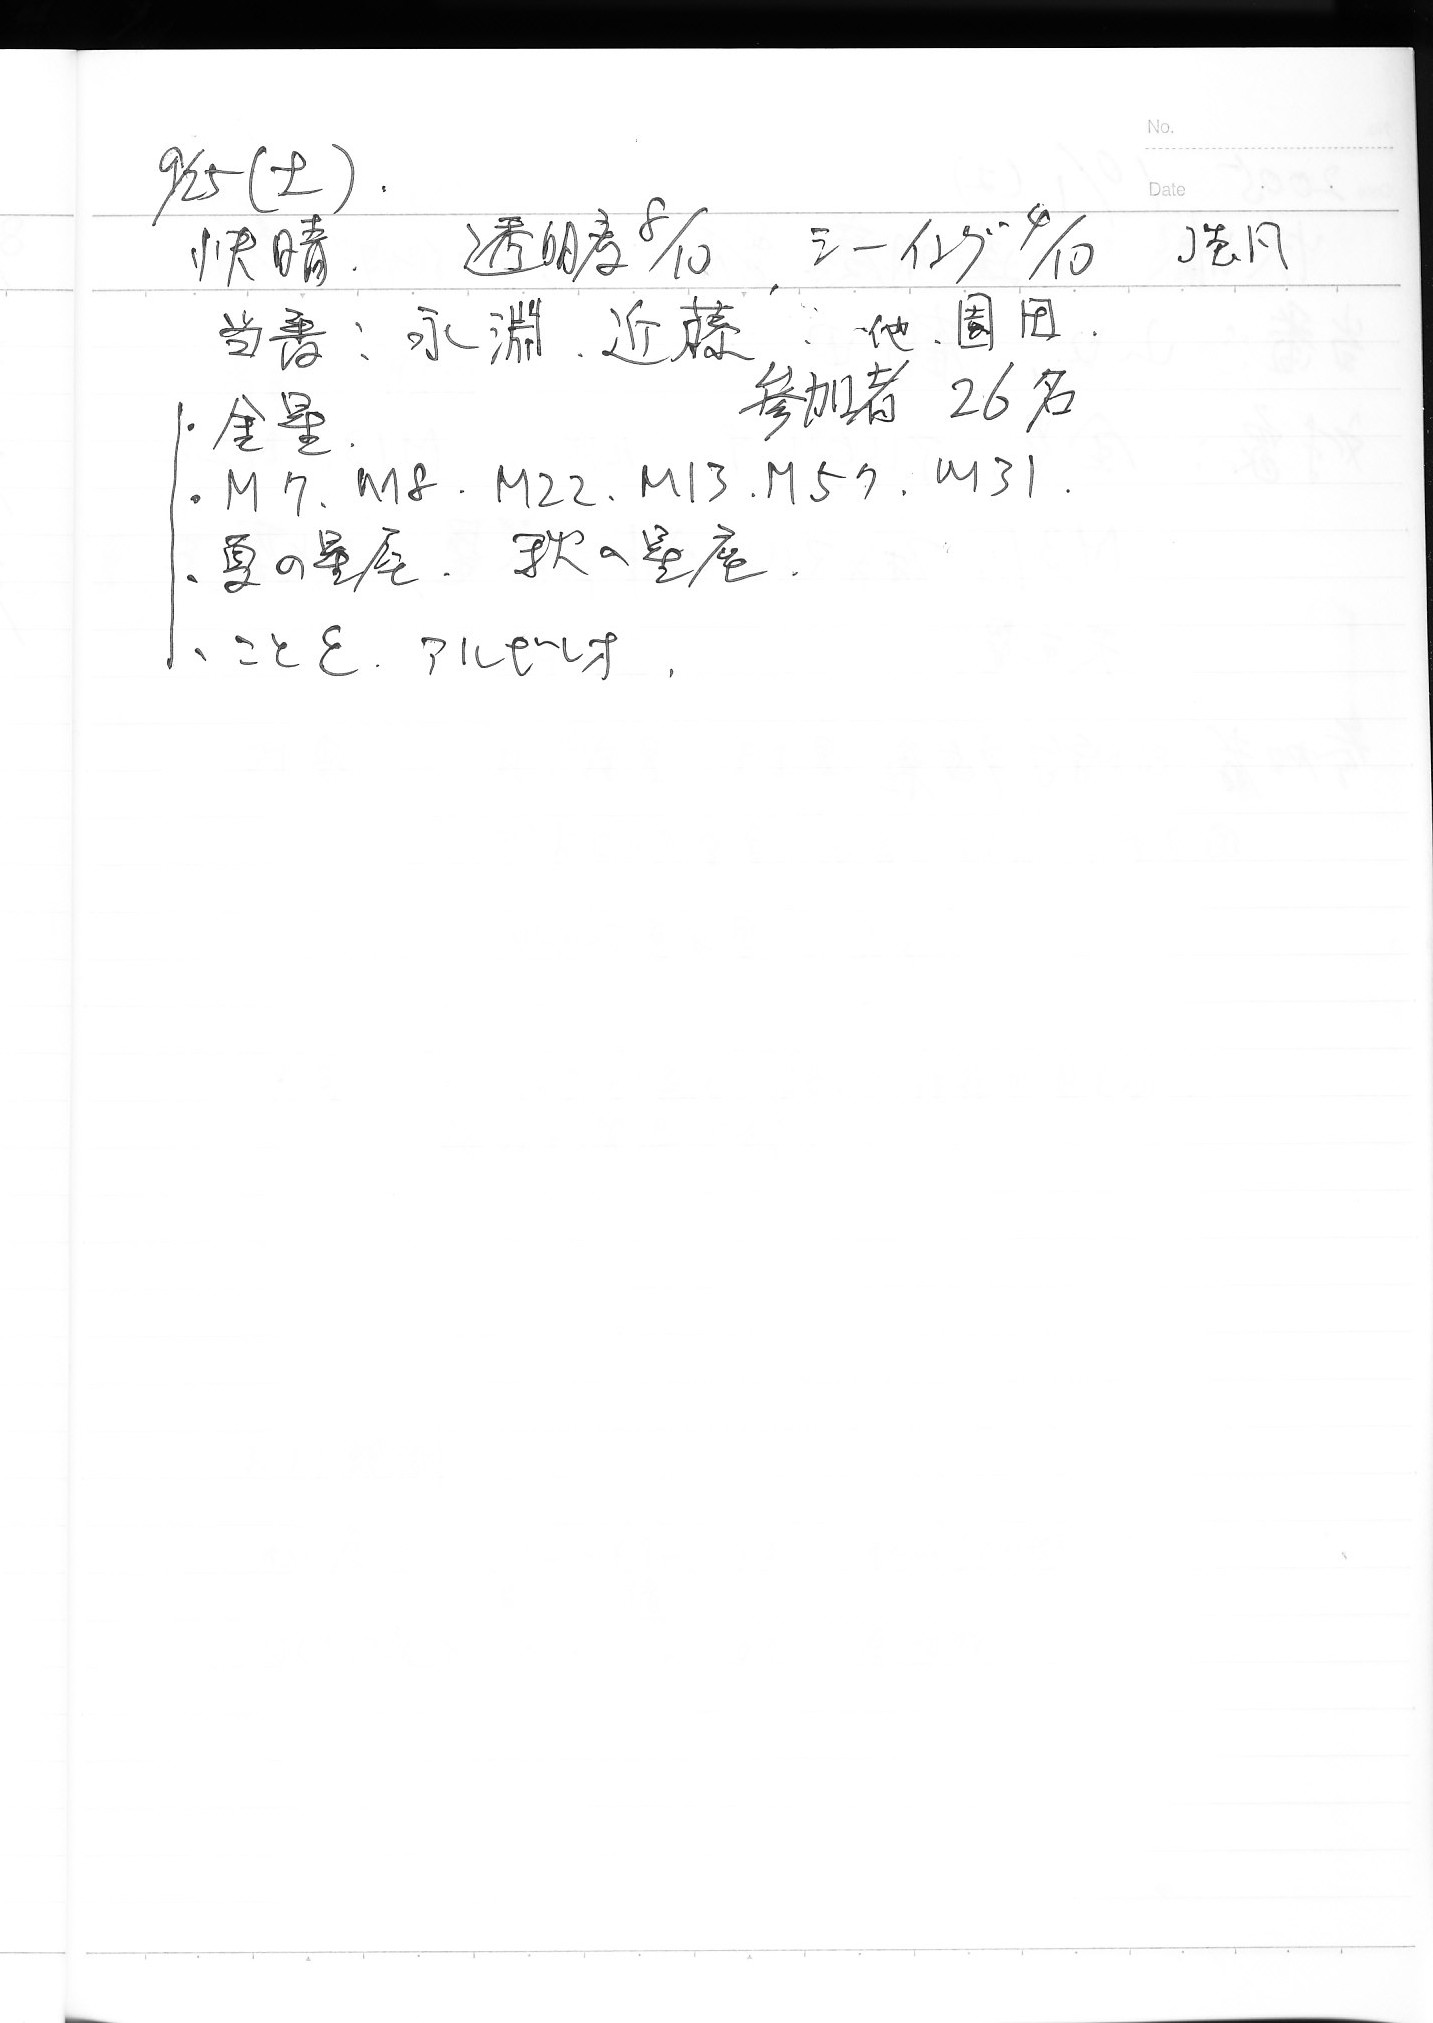 No.
9/25(土).
Date
快晴. 透明度8/10 シーイング4/10 強風
当番: 永淵、近藤 : 他、園田.
参加者 26名
・金星.
・M7、M8. M22、M13. M57. M31.
・夏の星座. 秋の星座.
・ことε. アルビレオ.